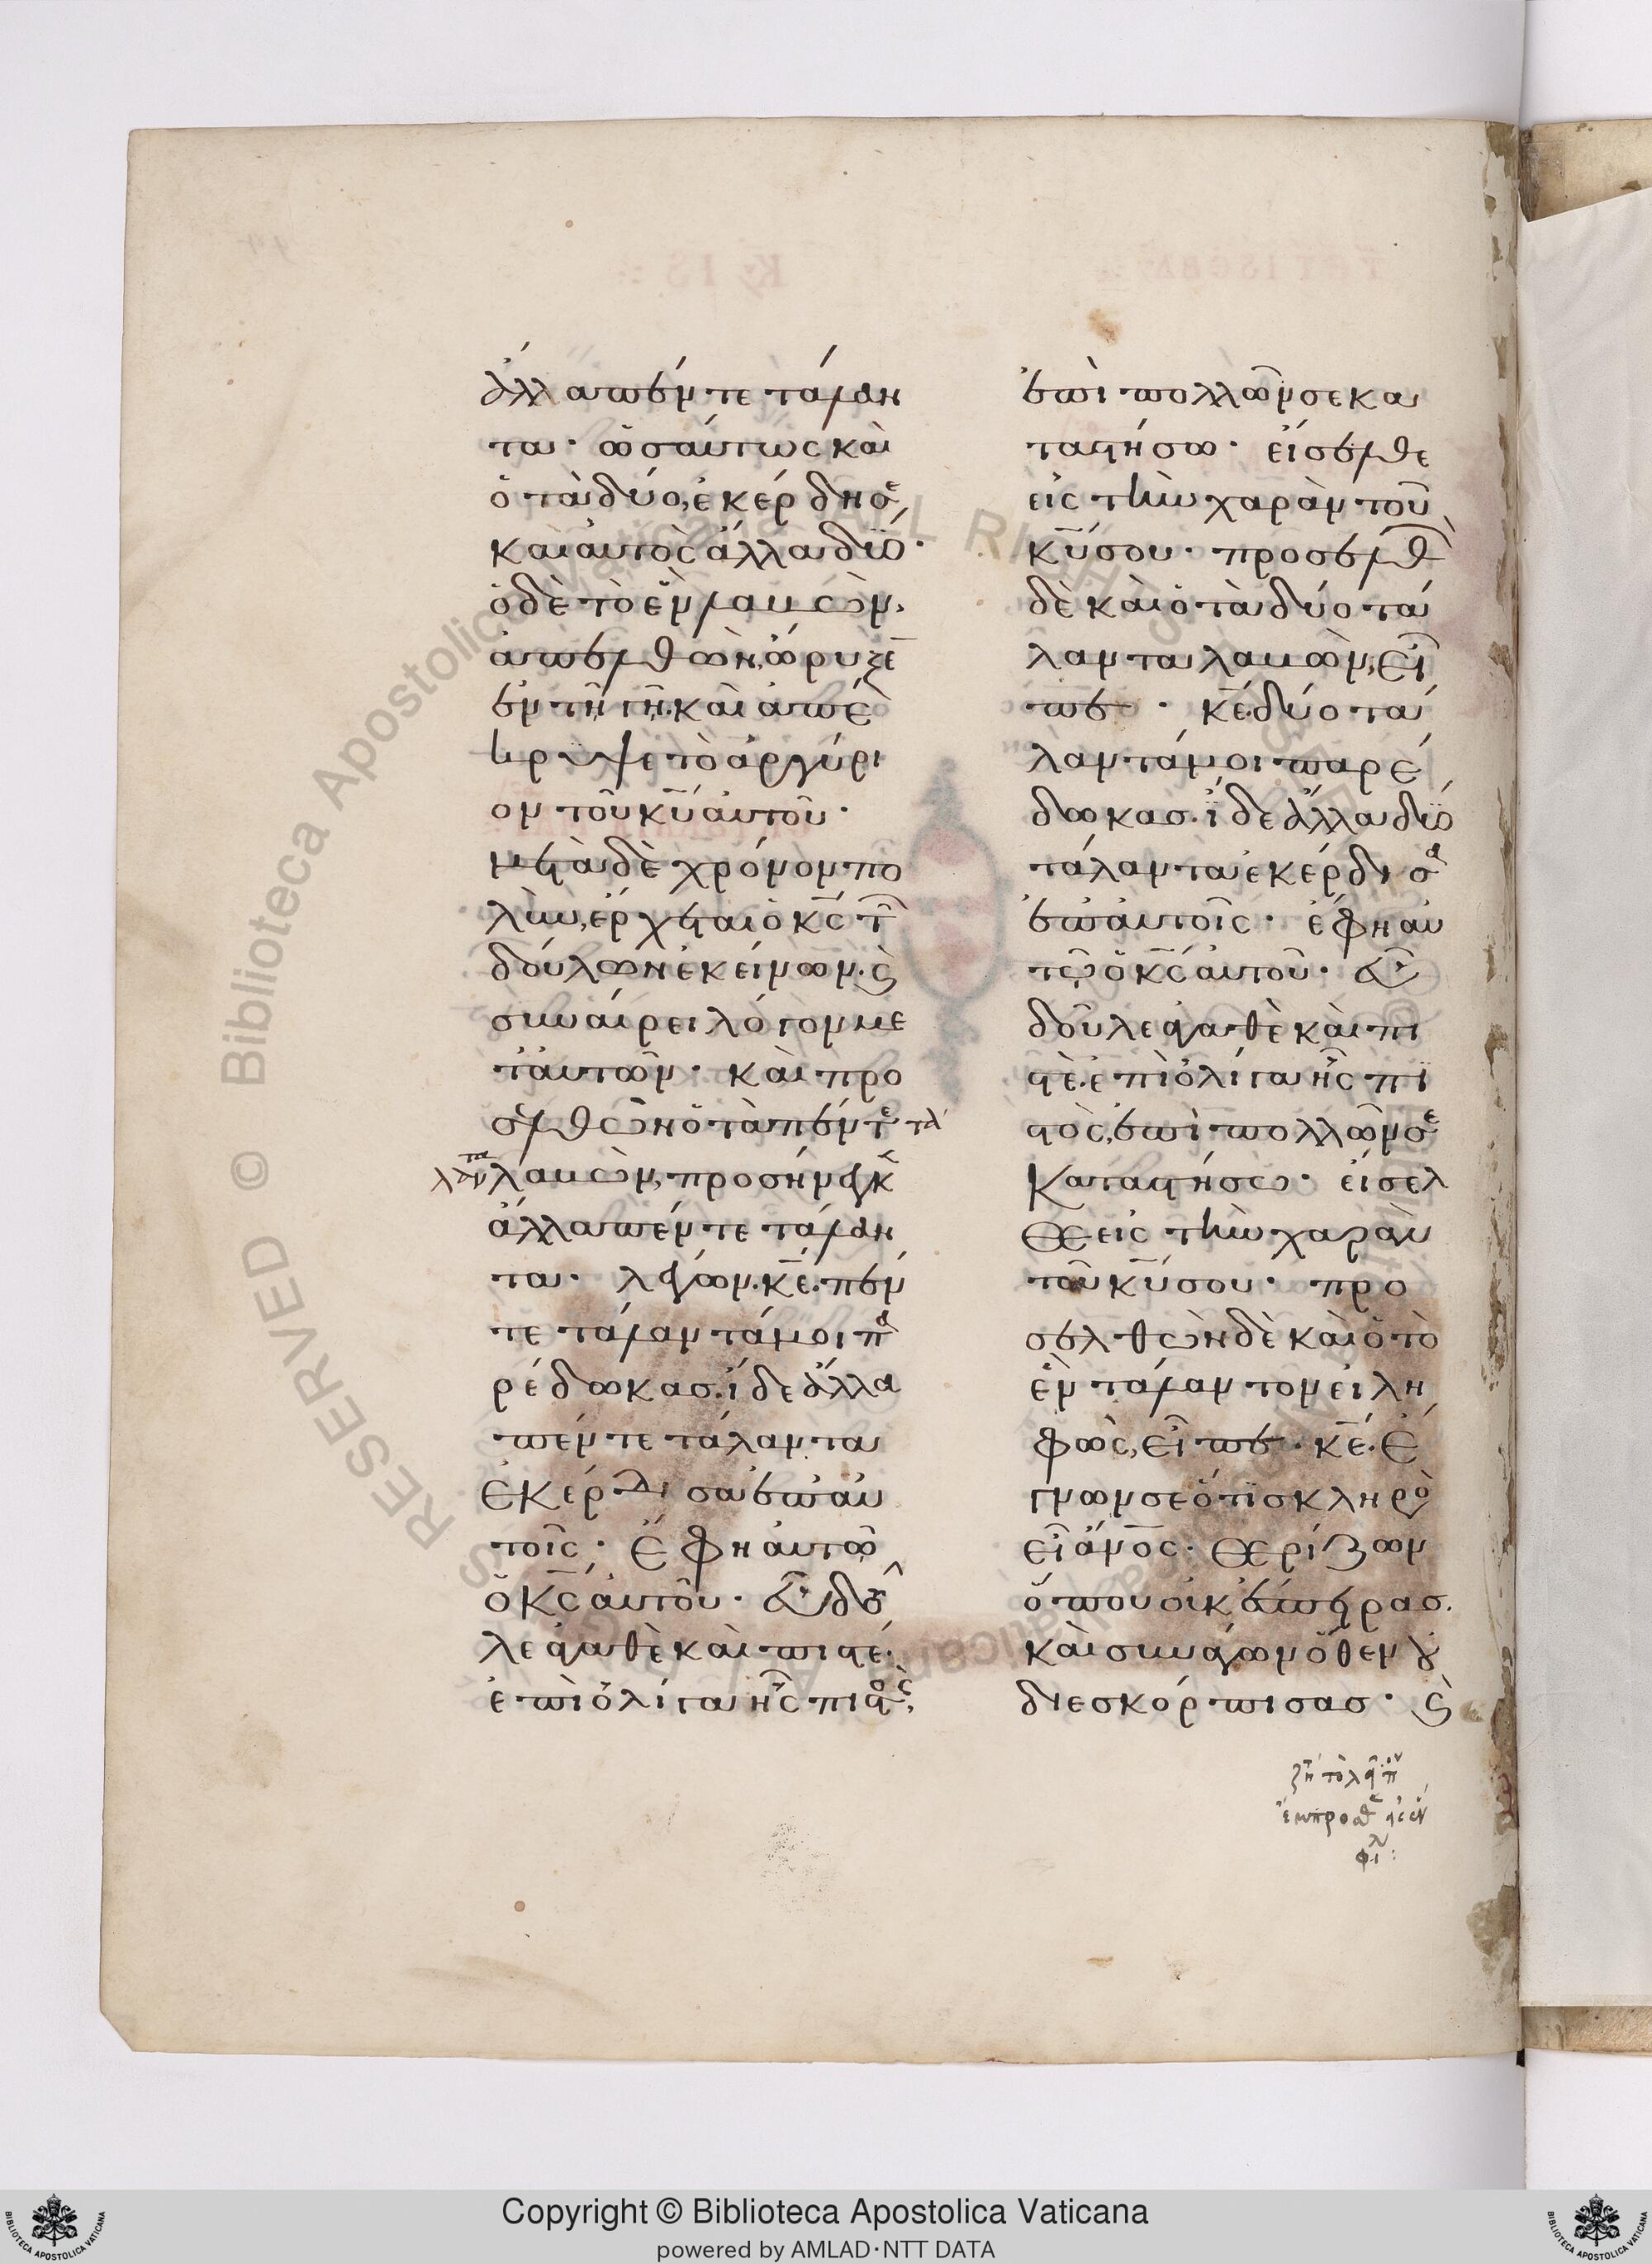 ἄλλα πέντε τάλαν
τα· ὡσαύτως καὶ
ὁ τὰ δύο, ἐκέρδησε
καὶ αὐτὸς ἄλλα δύο·
ὁ δὲ τὸ ἓν λαβὼν,
ἀπελθὼν, ὤρυξε
ἐν τῆ γῆ· καὶ ἀπέ
κρυψε τὸ ἀργύρι
ον τοῦ κυ αὐτοῦ·
μετὰ δὲ χρόνον πο
λὺν, ἔρχεται ὁ κς τῶν
δούλων ἐκείνων· καὶ
συναίρει λόγον με
τ' αὐτῶν· καὶ προ
σελθὼν ὁ τὰ πέντε τά
λαντα λαβὼν, προσήνεγκε
ἄλλα πέντε τάλαν
τα· λέγων· κε· πέν
τε τάλαντά μοι πα
ρέδωκας· ἴδε ἄλλα
πέντε τάλαντα
ἐκέρδισα ἐπ' αὐ
τοῖς· Ἔφη αὐτῶ
ὁ κς αὐτοῦ· εὖ δοῦ
λε ἀγαθὲ καὶ πιστέ·
ἐπὶ ὀλίγα ἦς πιστὸς,
ἐπὶ πολλῶν σε κα
ταστήσω· εἴσελθε
εἰς τὴν χαρὰν τοῦ
κυ σου· προσελθὼν
δὲ καὶ ὁ τὰ δύο τά
λαντα λαβὼν, εἶ
πε· κε· δύο τά
λαντά μοι παρέ
δωκας· ἴδε ἄλλα δύο
τάλαντα ἐκέρδισα
ἐπ' αὐτοῖς· ἔφη αὐ
τῶ ὁ κς αὐτοῦ· εὖ
δοῦλε ἀγαθὲ καὶ πι
στὲ· ἐπὶ ὀλίγα ἦς πι
στὸς, ἐπὶ πολλῶν σε
καταστήσω· εἴσελ
θε εἰς τὴν χαρὰν
τοῦ κυ σου· προ
σελθὼν δὲ καὶ ὁ τὸ
ἓν τάλαντον εἰλη
φὼς, εἶπε· κε· ἔ
γνων σε ὅτι σκληρὸς
εἶ ανος· θερίζων
ὅπου οὐκ ἔσπειρας·
καὶ συνάγων ὅθεν οὐ
διεσκόρπισας· καὶ